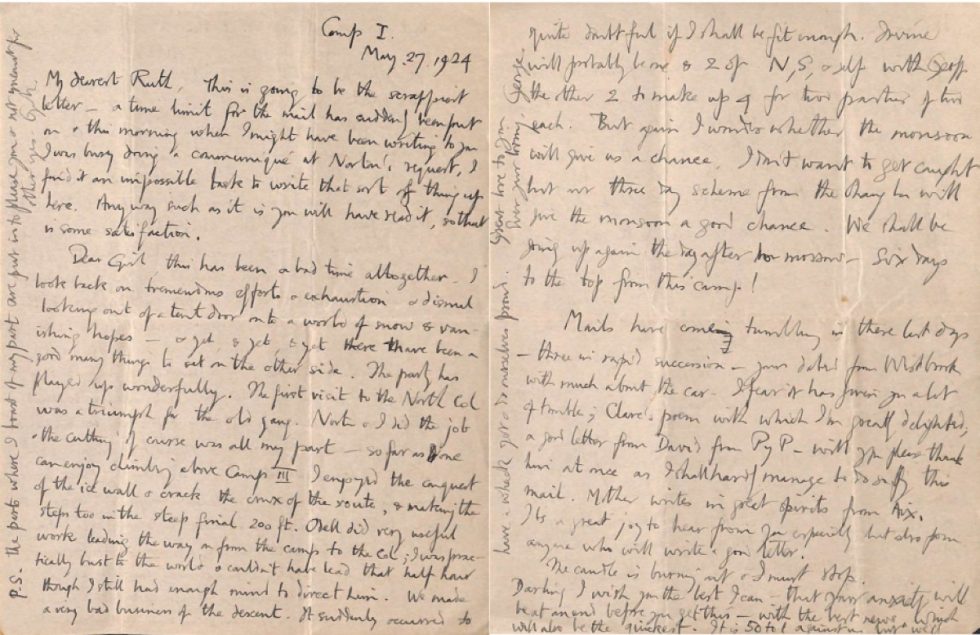 Camp I.
May. 27. 1924
My dearest Ruth, This is going to be the scrappiest
letter – a time limit for the mail has suddenly been put
on & this morning when I might have been writing to you
I was busy doing a communiqué at Norton's request, I
find it an impossible task to write that sort of thing up
here. Anyway such as it is you will have read it, so that
is some satisfaction.
Dear Girl, this has been a bad time altogether. I
look back on tremendous efforts & exhaustion & dismal
looking out of a tent door onto a world of snow & van-
ishing hopes – & yet, & yet, & yet there have been a
good many things to set on the other side. The party has
played up wonderfully. The first visit to the North Col
was a triumph for the old gang. Norton & I did the job
& the cutting of course was all my part – so far as one
can enjoy climbing above Camp III I enjoyed the conquest
of the ice wall & crack, the crux of the route, & making the
steps too in the steep final 200 ft. Odell did very useful
work leading the way on from the camp to the Col; I was prac-
tically bust to the world & couldn't have lead that half hour
though I still had enough mind to direct him. We made
a very bad business of the descent. It suddenly occurred to
P.S. The parts where I boast of my part are put in to please you & not meant for
other eyes. G.M.
quite doubtful if I shall be fit enough. Irvine
will probably be one & 2 of N, S, & self with Geoff
the other 2 to make up 4 for two parties of two
each. But again I wonder whether the monsoon
will give us a chance. I don't want to get caught
but our three day scheme from the Chang La will
give the monsoon a good chance. We shall be
going up again the day after tomorrow – Six days
to the top from this camp!
Mails have coming tumbling in these last days
– three in rapid succession – yours dated from Westbrook
with much about the car. I fear it has given you a lot
of trouble; Clare's poem with which I'm greatly delighted,
a good letter from David from PyP – will you please thank
him at once as I shall hardly manage to do so by this
mail. Mother writes in great spirits from Aix.
It's a great joy to hear from you especially but also from
anyone who will write a good letter.
The candle is burning out & I must stop.
Darling I wish you the best I can – that your anxiety will
be at an end before you get this – with the best news. Which
will also be the quickest. It is 50 to 1 against us but we'll
have a whack yet & do ourselves proud. Great love to you
Ever your loving, George